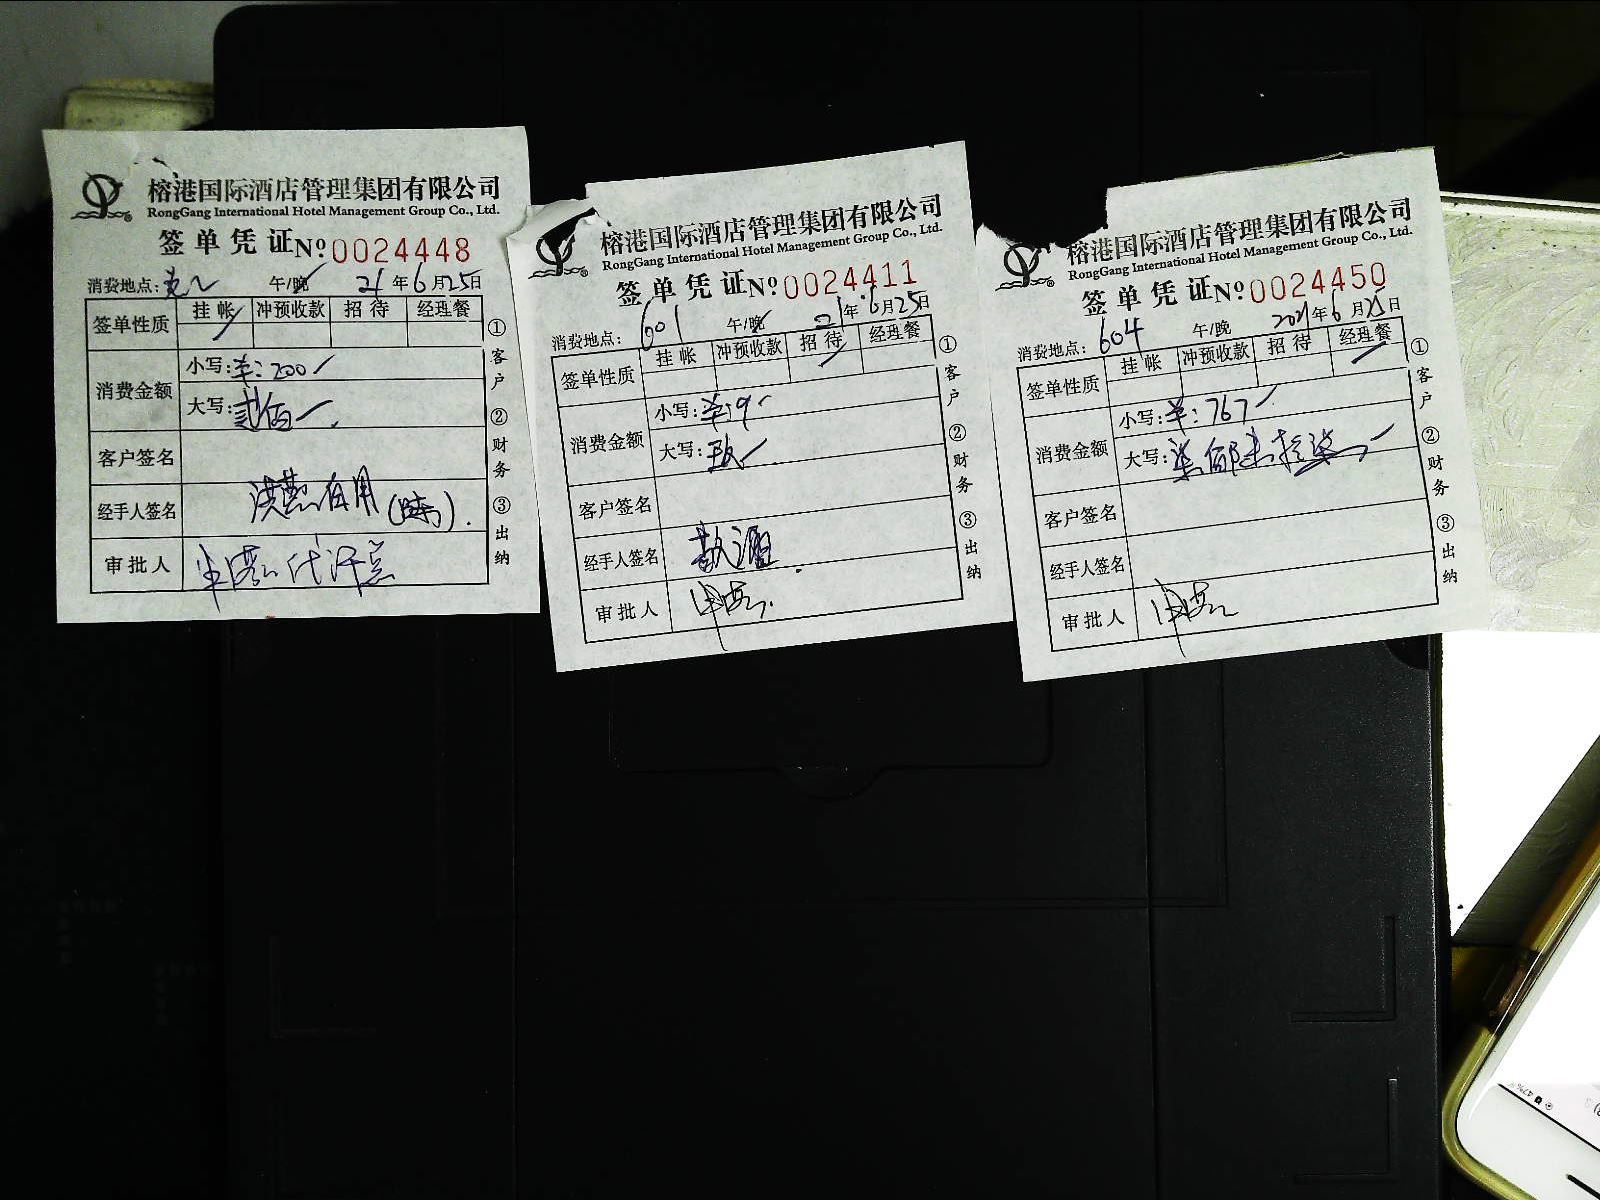 榕港国际酒店管理集团有限公司
RongGang International Hotel Management Group Co., Ltd.
签单凭证 № 0024448
消费地点: 午/晚 21 年 6 月 25 日
签单性质 挂帐 冲预收款 招待 经理餐
消费金额
小写: 羊: 200
大写: 贰佰
客户签名
经手人签名
审批人
①客户 ②财务 ③出纳
榕港国际酒店管理集团有限公司
RongGang International Hotel Management Group Co., Ltd.
签单凭证 № 0024411
消费地点: 601 午/晚 21 年 6 月 25 日
签单性质 挂帐 冲预收款 招待 经理餐
消费金额
小写: 羊: 9
大写: 玖
客户签名
经手人签名
审批人
①客户 ②财务 ③出纳
榕港国际酒店管理集团有限公司
RongGang International Hotel Management Group Co., Ltd.
签单凭证 № 0024450
消费地点: 604 午/晚 2021 年 6 月 25 日
签单性质 挂帐 冲预收款 招待 经理餐
消费金额
小写: 羊: 767
大写:
客户签名
经手人签名
审批人
①客户 ②财务 ③出纳
47%